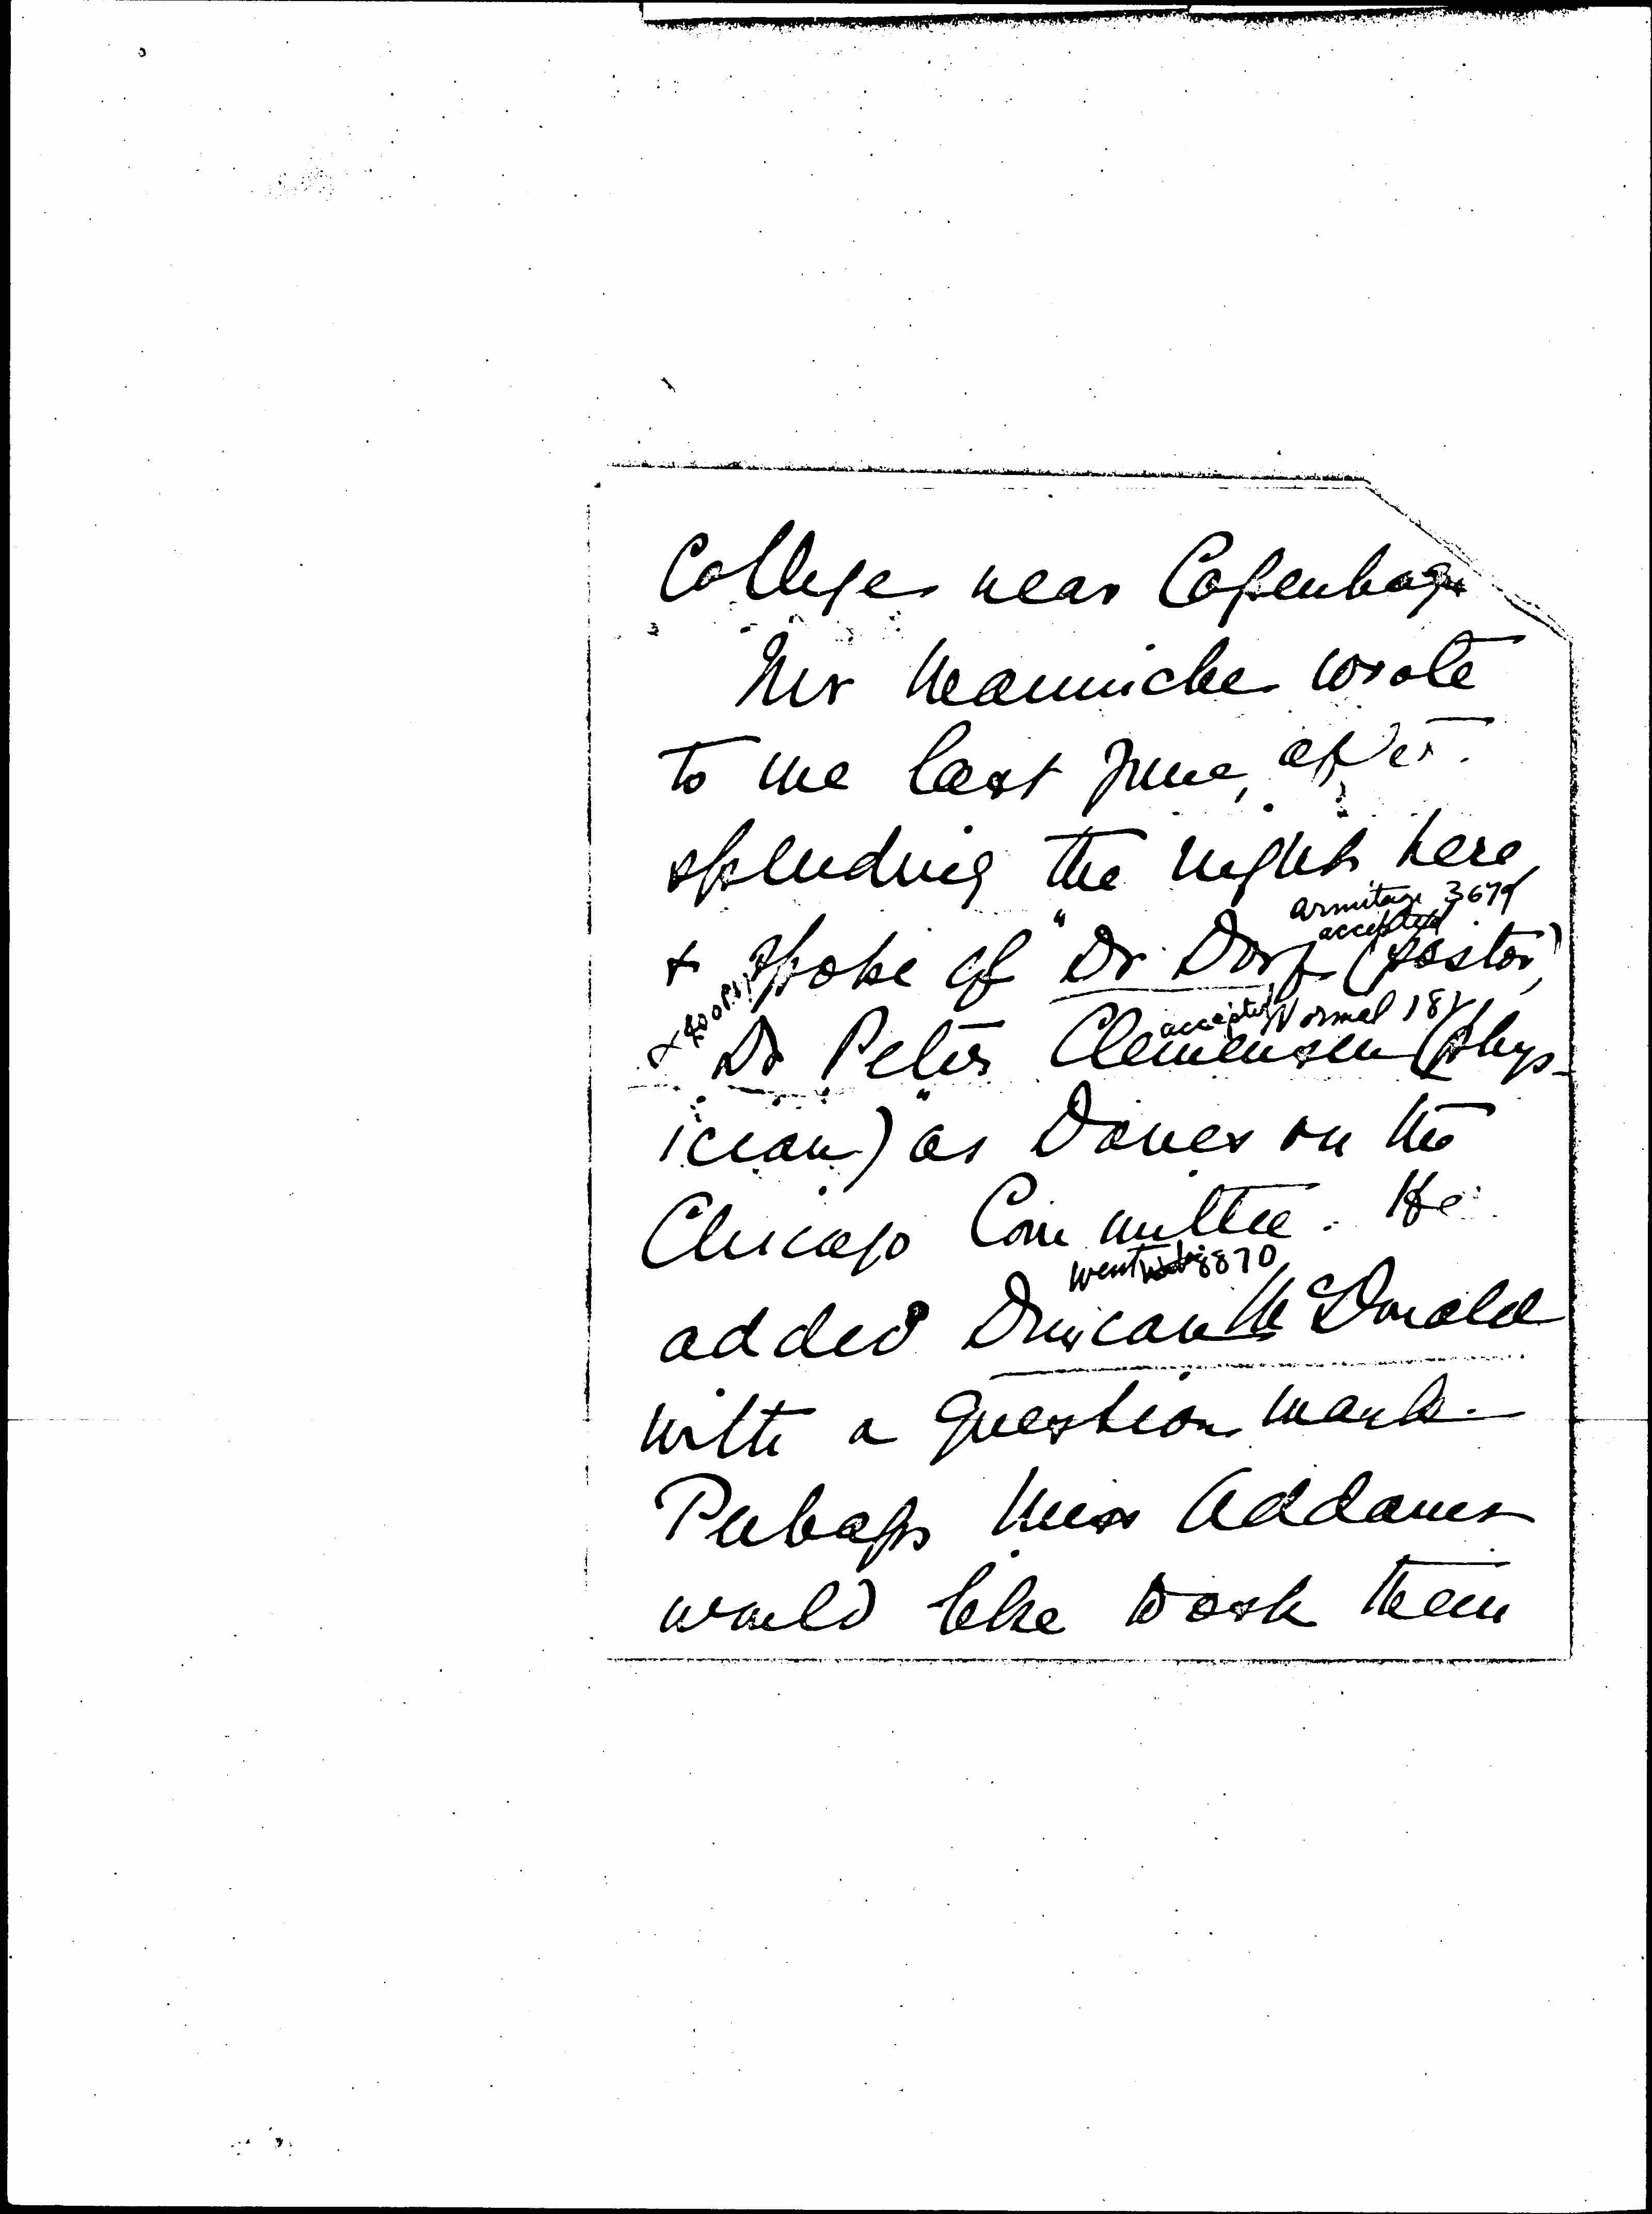 College near Copenhage
Mr Manniche wrote
to me last June, after
spending the night here
Armitage 3679
accepted
+ spoke of "Dr Dorf (pastor),
accepted Normal 182
Dr Peter Clemensen" (phys-
ician) as Danes on the
Chicago Committee. He
Went 8870
added Duncan McDonald
with a question mark.
Perhaps Miss Addams
would like to ask them